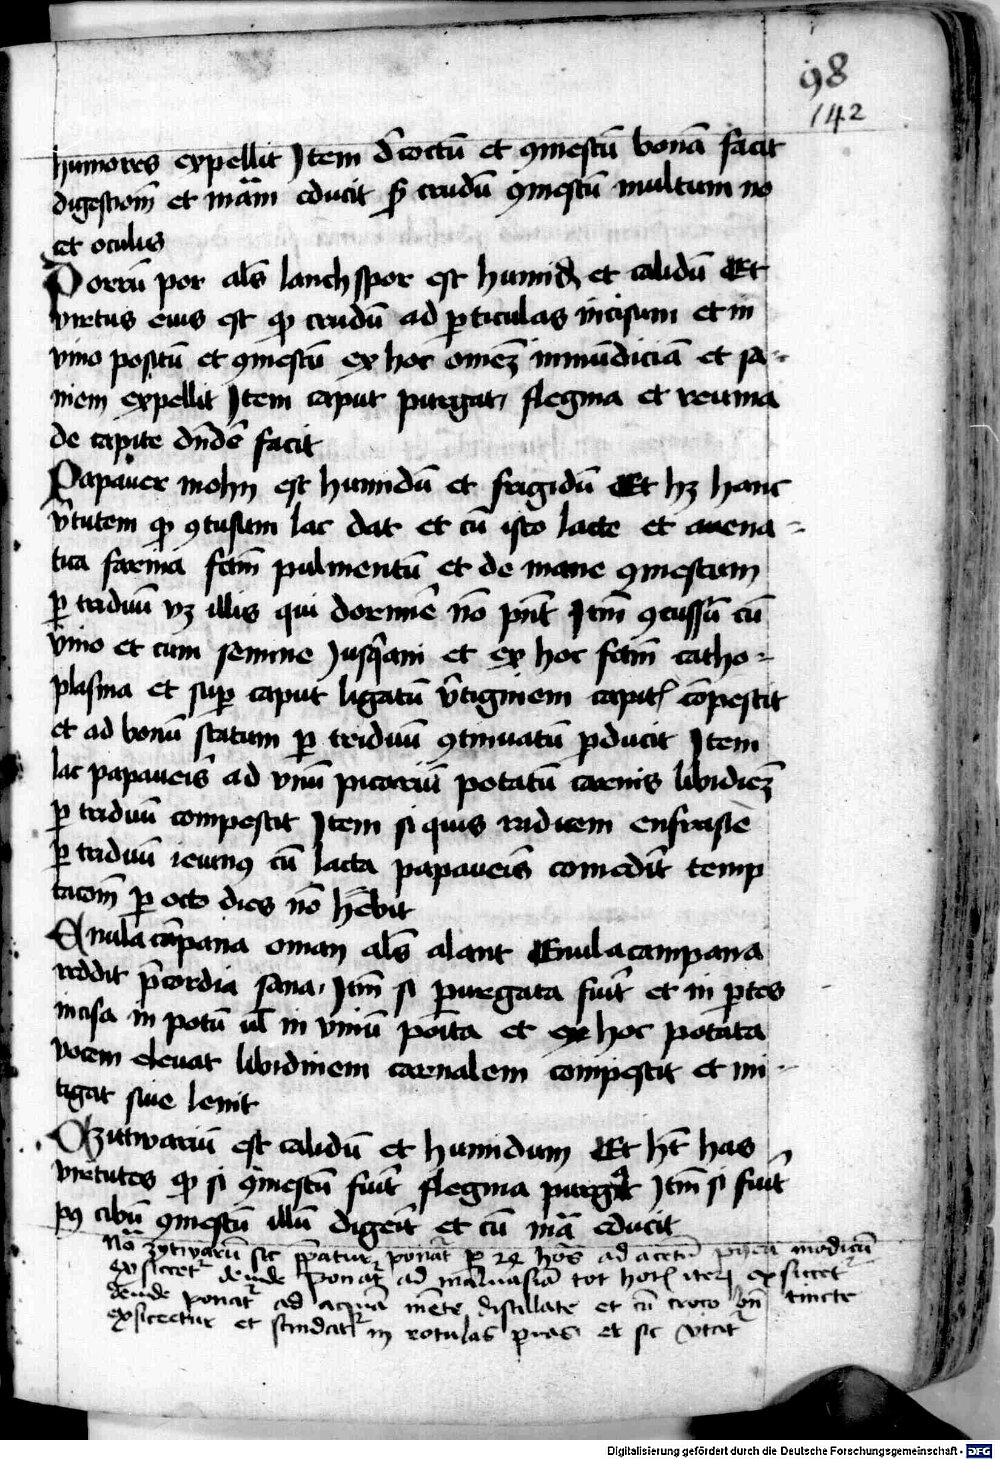 98
142
humores expellit Item dcoctū et ꝯmestū bonā facit
digestionē et mām educit ſꝫ crudū ꝯmestū multum no
cet oculis
Porrū por als lanch spor est humidū et calidū Et
virtus eius est ꝙ crudū ad ꝑticulas incisum et in
vino positū et ꝯmestū ex hoc omēꝫ inmūdiciā et sa-
niem expellit Item caput purgat flegma et reuma
de capite facit
Papaver mohn est humidū et frigidū Et hꝫ hanc
v̄tutem ꝙ ꝯtusum lac dat et cū isto lacte et avena-
tica farina fcm̄ pulmentū et de mane ꝯmestum
ꝑ triduū vꝫ illis qui dormīe nō pn̄t Itm̄ ꝯcussū cū
vino et cum semine Jusqani et ex hoc fcm̄ catho-
plasma et suꝑ caput ligatū v̄tiginem capitꝭ cōpescit
et ad bonū statum ꝑ triduū ꝯtinuatū ꝑducit Item
lac papaveis ad vnū picariū potatū carnis libidīeꝫ
ꝑ triduū compescit Item si quis radicem enfrasie
ꝑ triduū ieiunꝰ cū lacta papaveis comedit temp
tacōm ꝑ octo dies nō hēbit
Enula cāpana oman als alant Enula campana
reddit p̄cordia sana Itm̄ si purgata fuit et in ꝑtes
incisa in potū ul in vinū poīta et ex hoc potata
vocem elevat libidinem carnalem compescit et mi-
tigat sive lenit
Zitwariū est calidū et humidum Et hꝫ has
virtutes ꝙ si ꝯmestū fuit flegma purgat Itm̄ si fuit
pꝰ cibū ꝯmestū illū digeit et cū mā educit
Nō zytwarū sic p̄patur ponat ꝑ 24 hoꝭ ad acetū modicū
exsiccet deinde ponat ad malvasiā tot hoꝭ iteꝝ exsiccet
deinde ponat ad acquā mēte distillate et cū croco bn̄ tincte
exsiccetur et scindat in rotulas ꝑvas et sic vtat
Digitalisierung gefördert durch die Deutsche Forschungsgemeinschaft - DFG